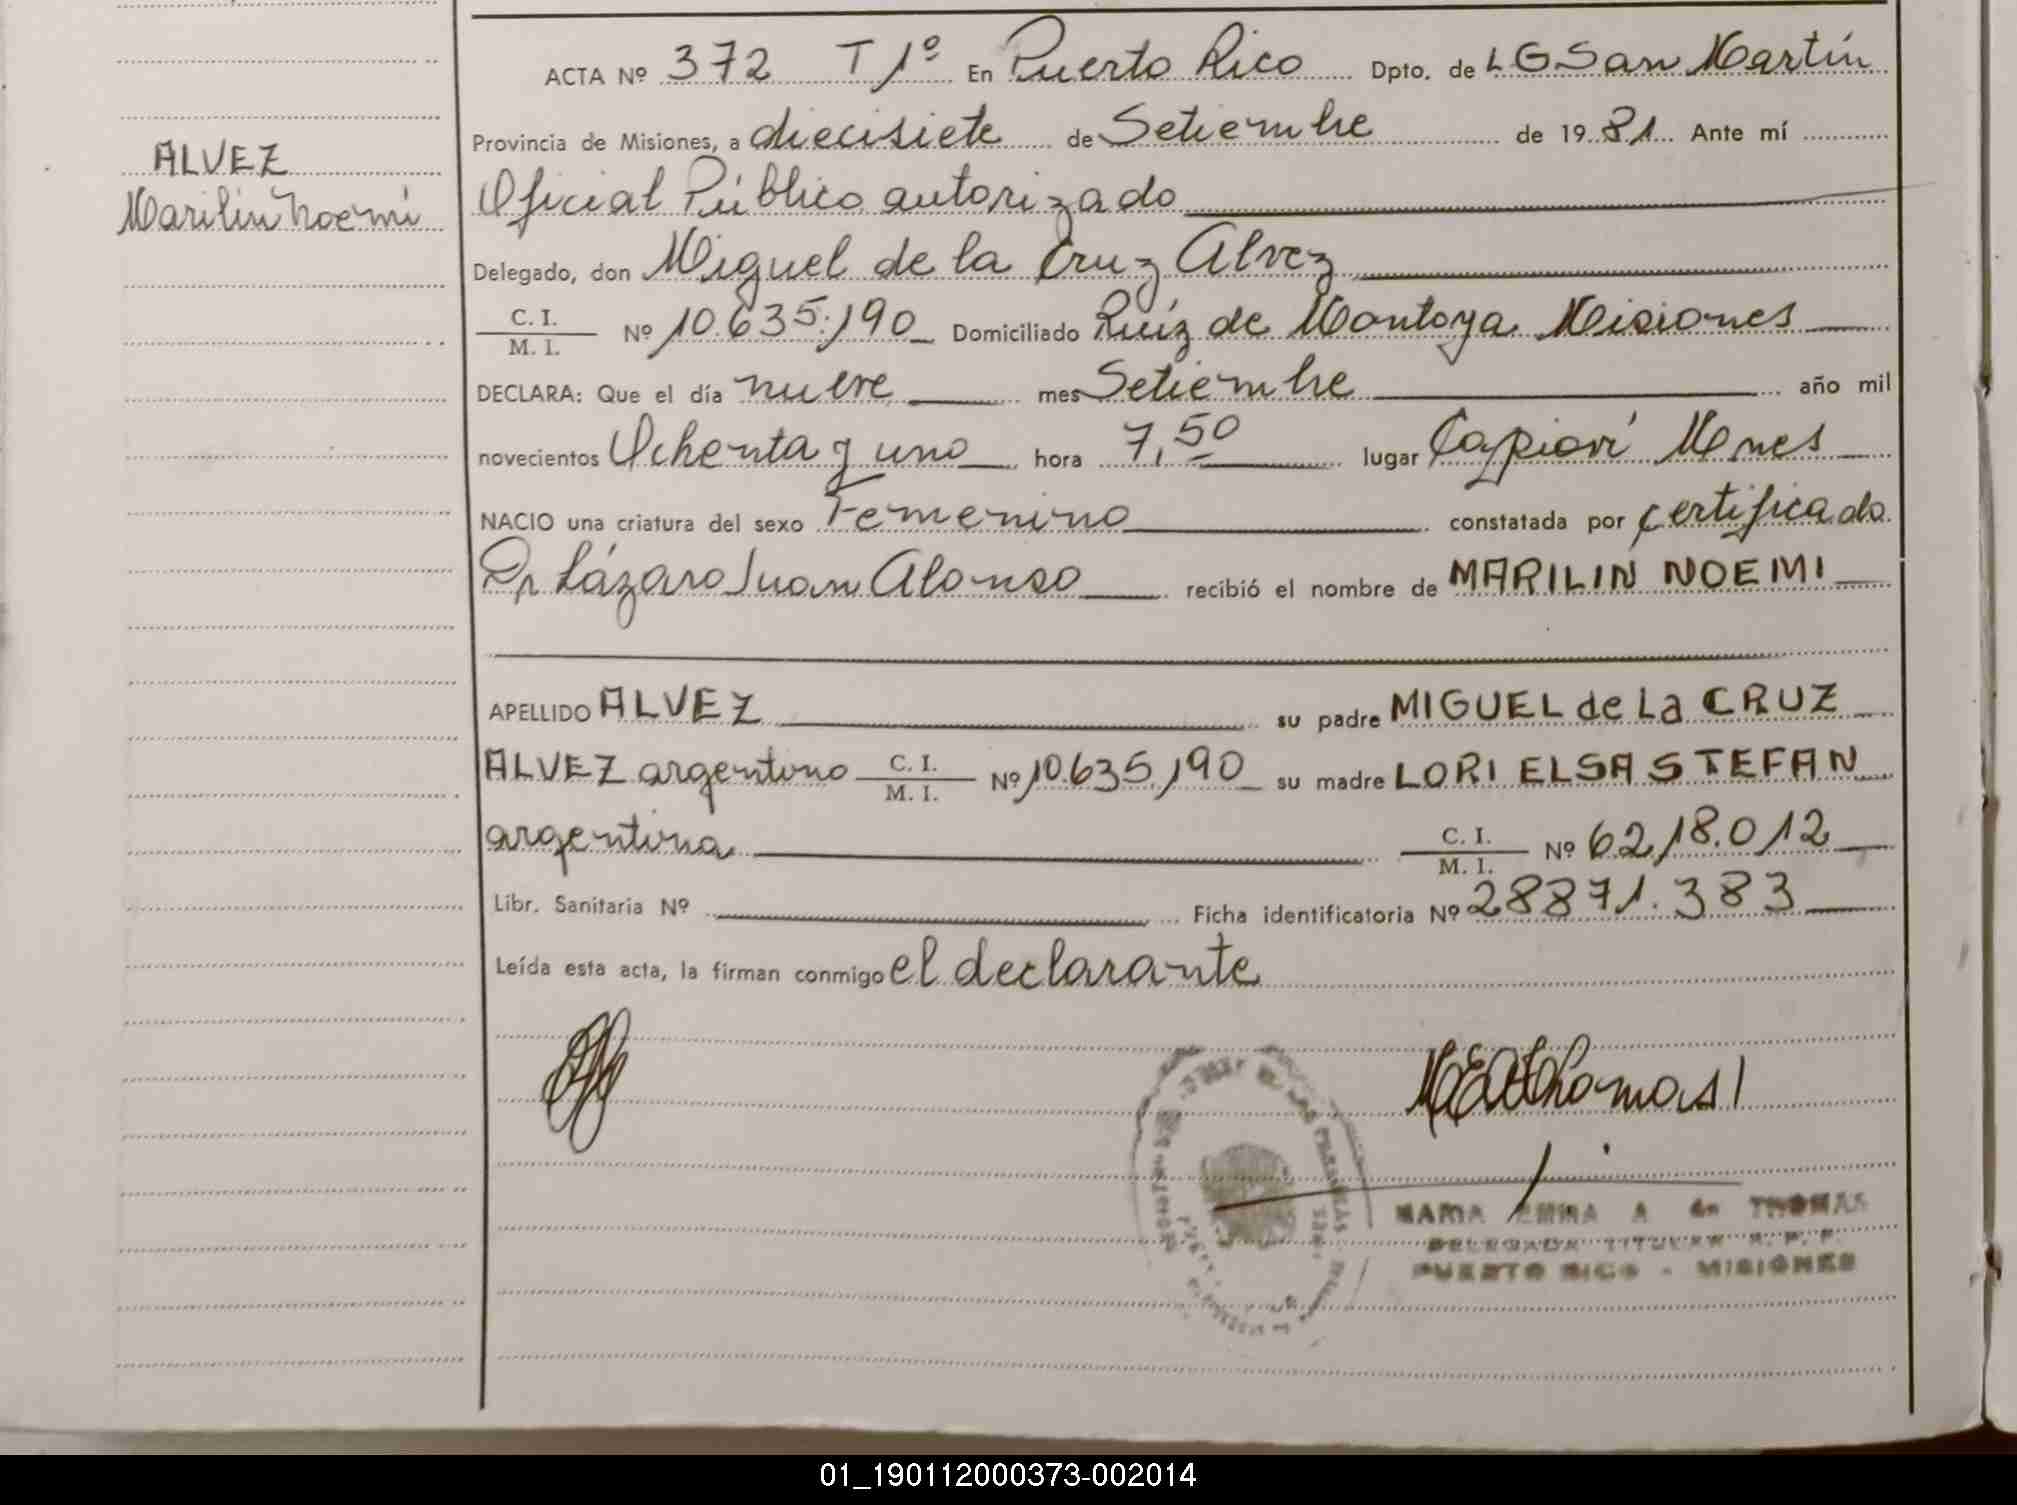 ACTA Nº 372 T 1º En Puerto Rico Dpto. de LG San Martín
Provincia de Misiones, a diecisiete de Setiembre de 1981 Ante mí
ALVEZ
Marilin Noemi
Oficial Público autorizado
Delegado, don Miguel de la Cruz Alvez
C. I.
M. I. Nº 10.635.190 Domiciliado Ruíz de Montoya Misiones
DECLARA: Que el día nueve mes Setiembre año mil
novecientos Ochenta y uno hora 7,50 lugar Capioví Mnes
NACIO una criatura del sexo Femenino constatada por certificado
Dr Lázaro Juan Alonso recibió el nombre de MARILIN NOEMI
APELLIDO ALVEZ su padre MIGUEL de La CRUZ
ALVEZ argentino C. I. M. I. Nº 10.635.190 su madre LORI ELSA STEFAN
argentina C. I. M. I. Nº 6.218.012
Libr. Sanitaria Nº Ficha identificatoria Nº 28871.383
Leída esta acta, la firman conmigo el declarante
MARIA EMMA A de THOMAS
DELEGADA TITULAR R. P. P.
PUERTO RICO - MISIONES
01_190112000373-002014